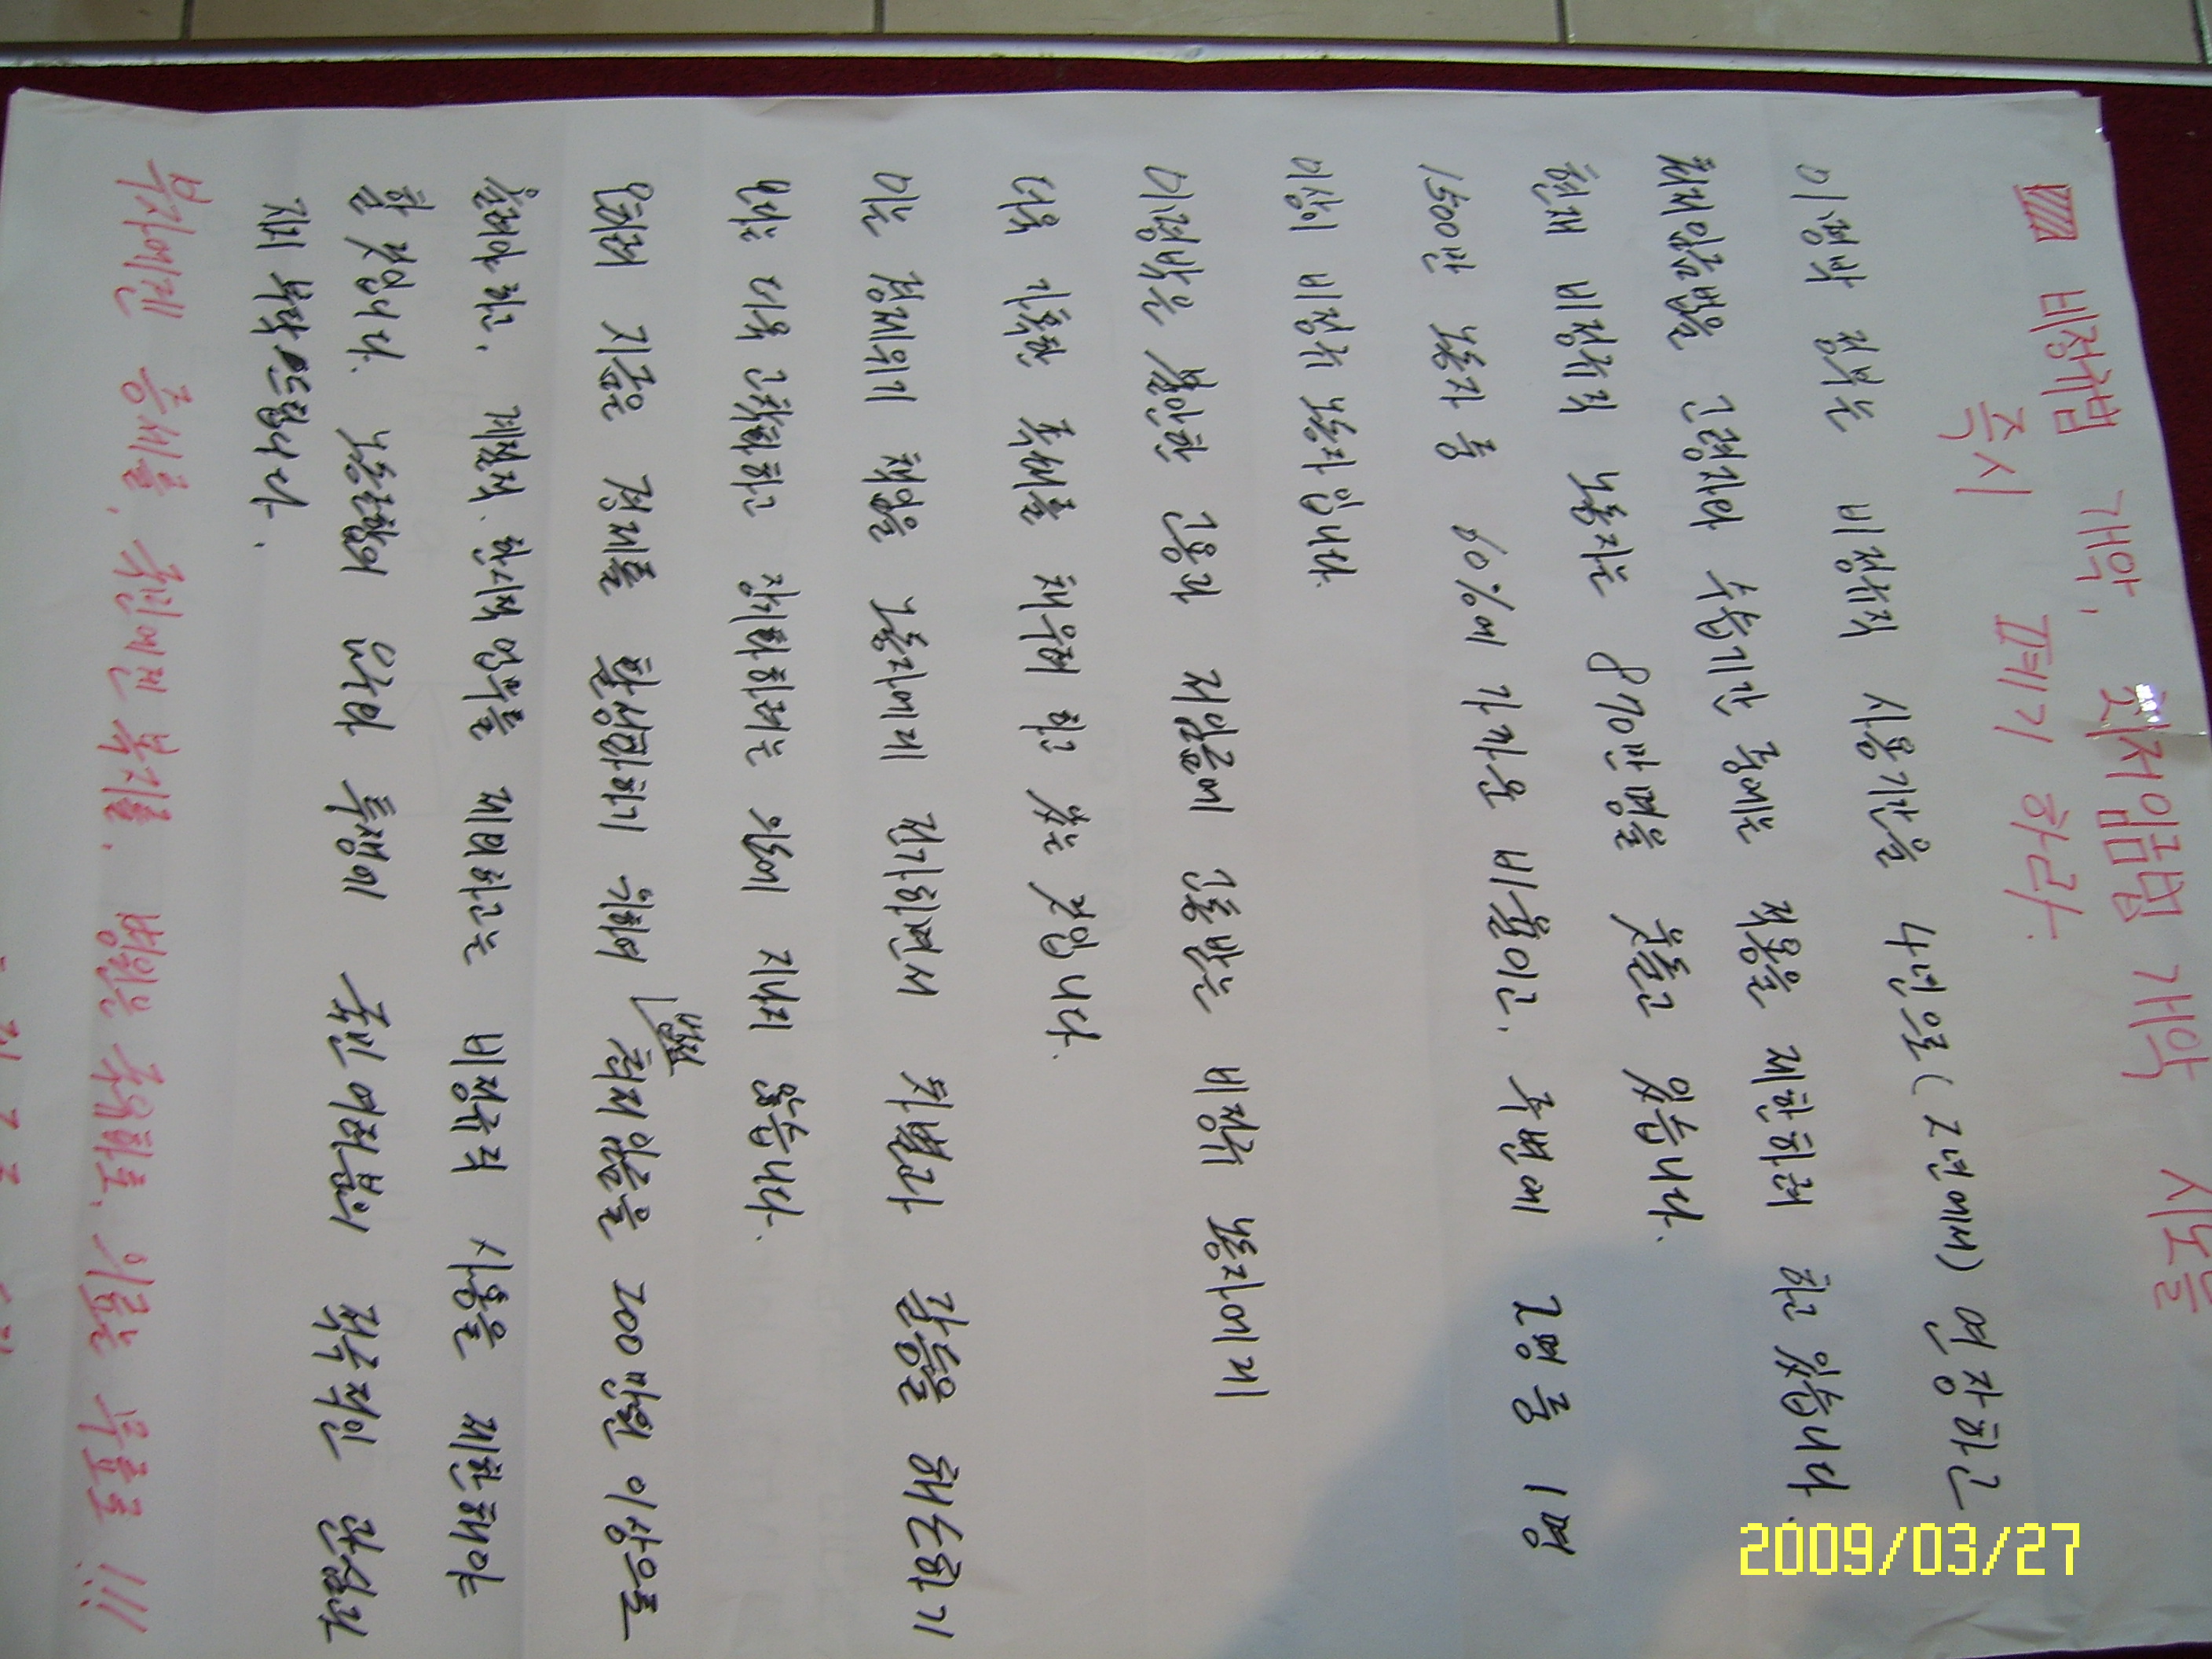 비정규법 개악, 최저임금법 개악 시도를
즉시 폐기 하라.
이명박 정부는 비정규직 사용기간을 4년으로(2년에서) 연장하고
최저임금법을 고령자와 수습기간 중에는 적용을 제한하려 하고 있습니다.
현재 비정규직 노동자는 870만명을 웃돌고 있습니다.
1500만 노동자 중 60%에 가까운 비율이고, 주변에 2명 중 1명
이상이 비정규 노동자입니다.
이명박은 불안한 고용과 저임금에 고통받는 비정규 노동자에게
더욱 가혹한 족쇄를 채우려 하고 있는 것입니다.
이는 경제위기 책임을 노동자에게 전가하면서 차별과 갈등을 해소하기
보다는 더욱 고착화하고 강화하려는 의도에 지나지 않습니다.
오히려 지금은 경제를 활성화하기 위해 법정 최저임금을 200만원 이상으로
올려야 하고, 계절적, 한시적 업무를 제외하고는 비정규직 사용을 제한해야
할 것입니다. 노동조합의 요구와 투쟁에 국민 여러분의 적극적인 관심과
지지 부탁드립니다.
부자에겐 증세를, 국민에겐 복지를, 병원은 무상의료, 의료는 무료로!!!
2009/03/27